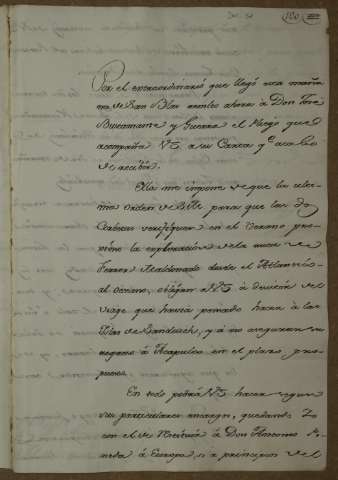 100
Por el extraordinario que llegó esta mañana
na de San Blas remito ahora à Don José
Bustamante y Guerra el Pliego que
acompaña VS à su Carta qe. acabo
de recibir.
Ella me impone de que la ulti-
ma orden de S.M. para que las dos
Corbetas verifiquen en el Verano pro-
ximo la exploracion de la costa de
Ferrer Maldonado desde el Atlantico
al Oceano, obligan à VS à desistir del
viage que havia pensado hacer à las
Islas de Sandwich, y à no asegurar su
regreso à Acapulco en el plazo pro-
puesto.
En todo podrá VS hacer segun
su particular encargo, quedando Yo
con el de Remitir à Don Antonio Pi-
neda à Europa, si à principios del